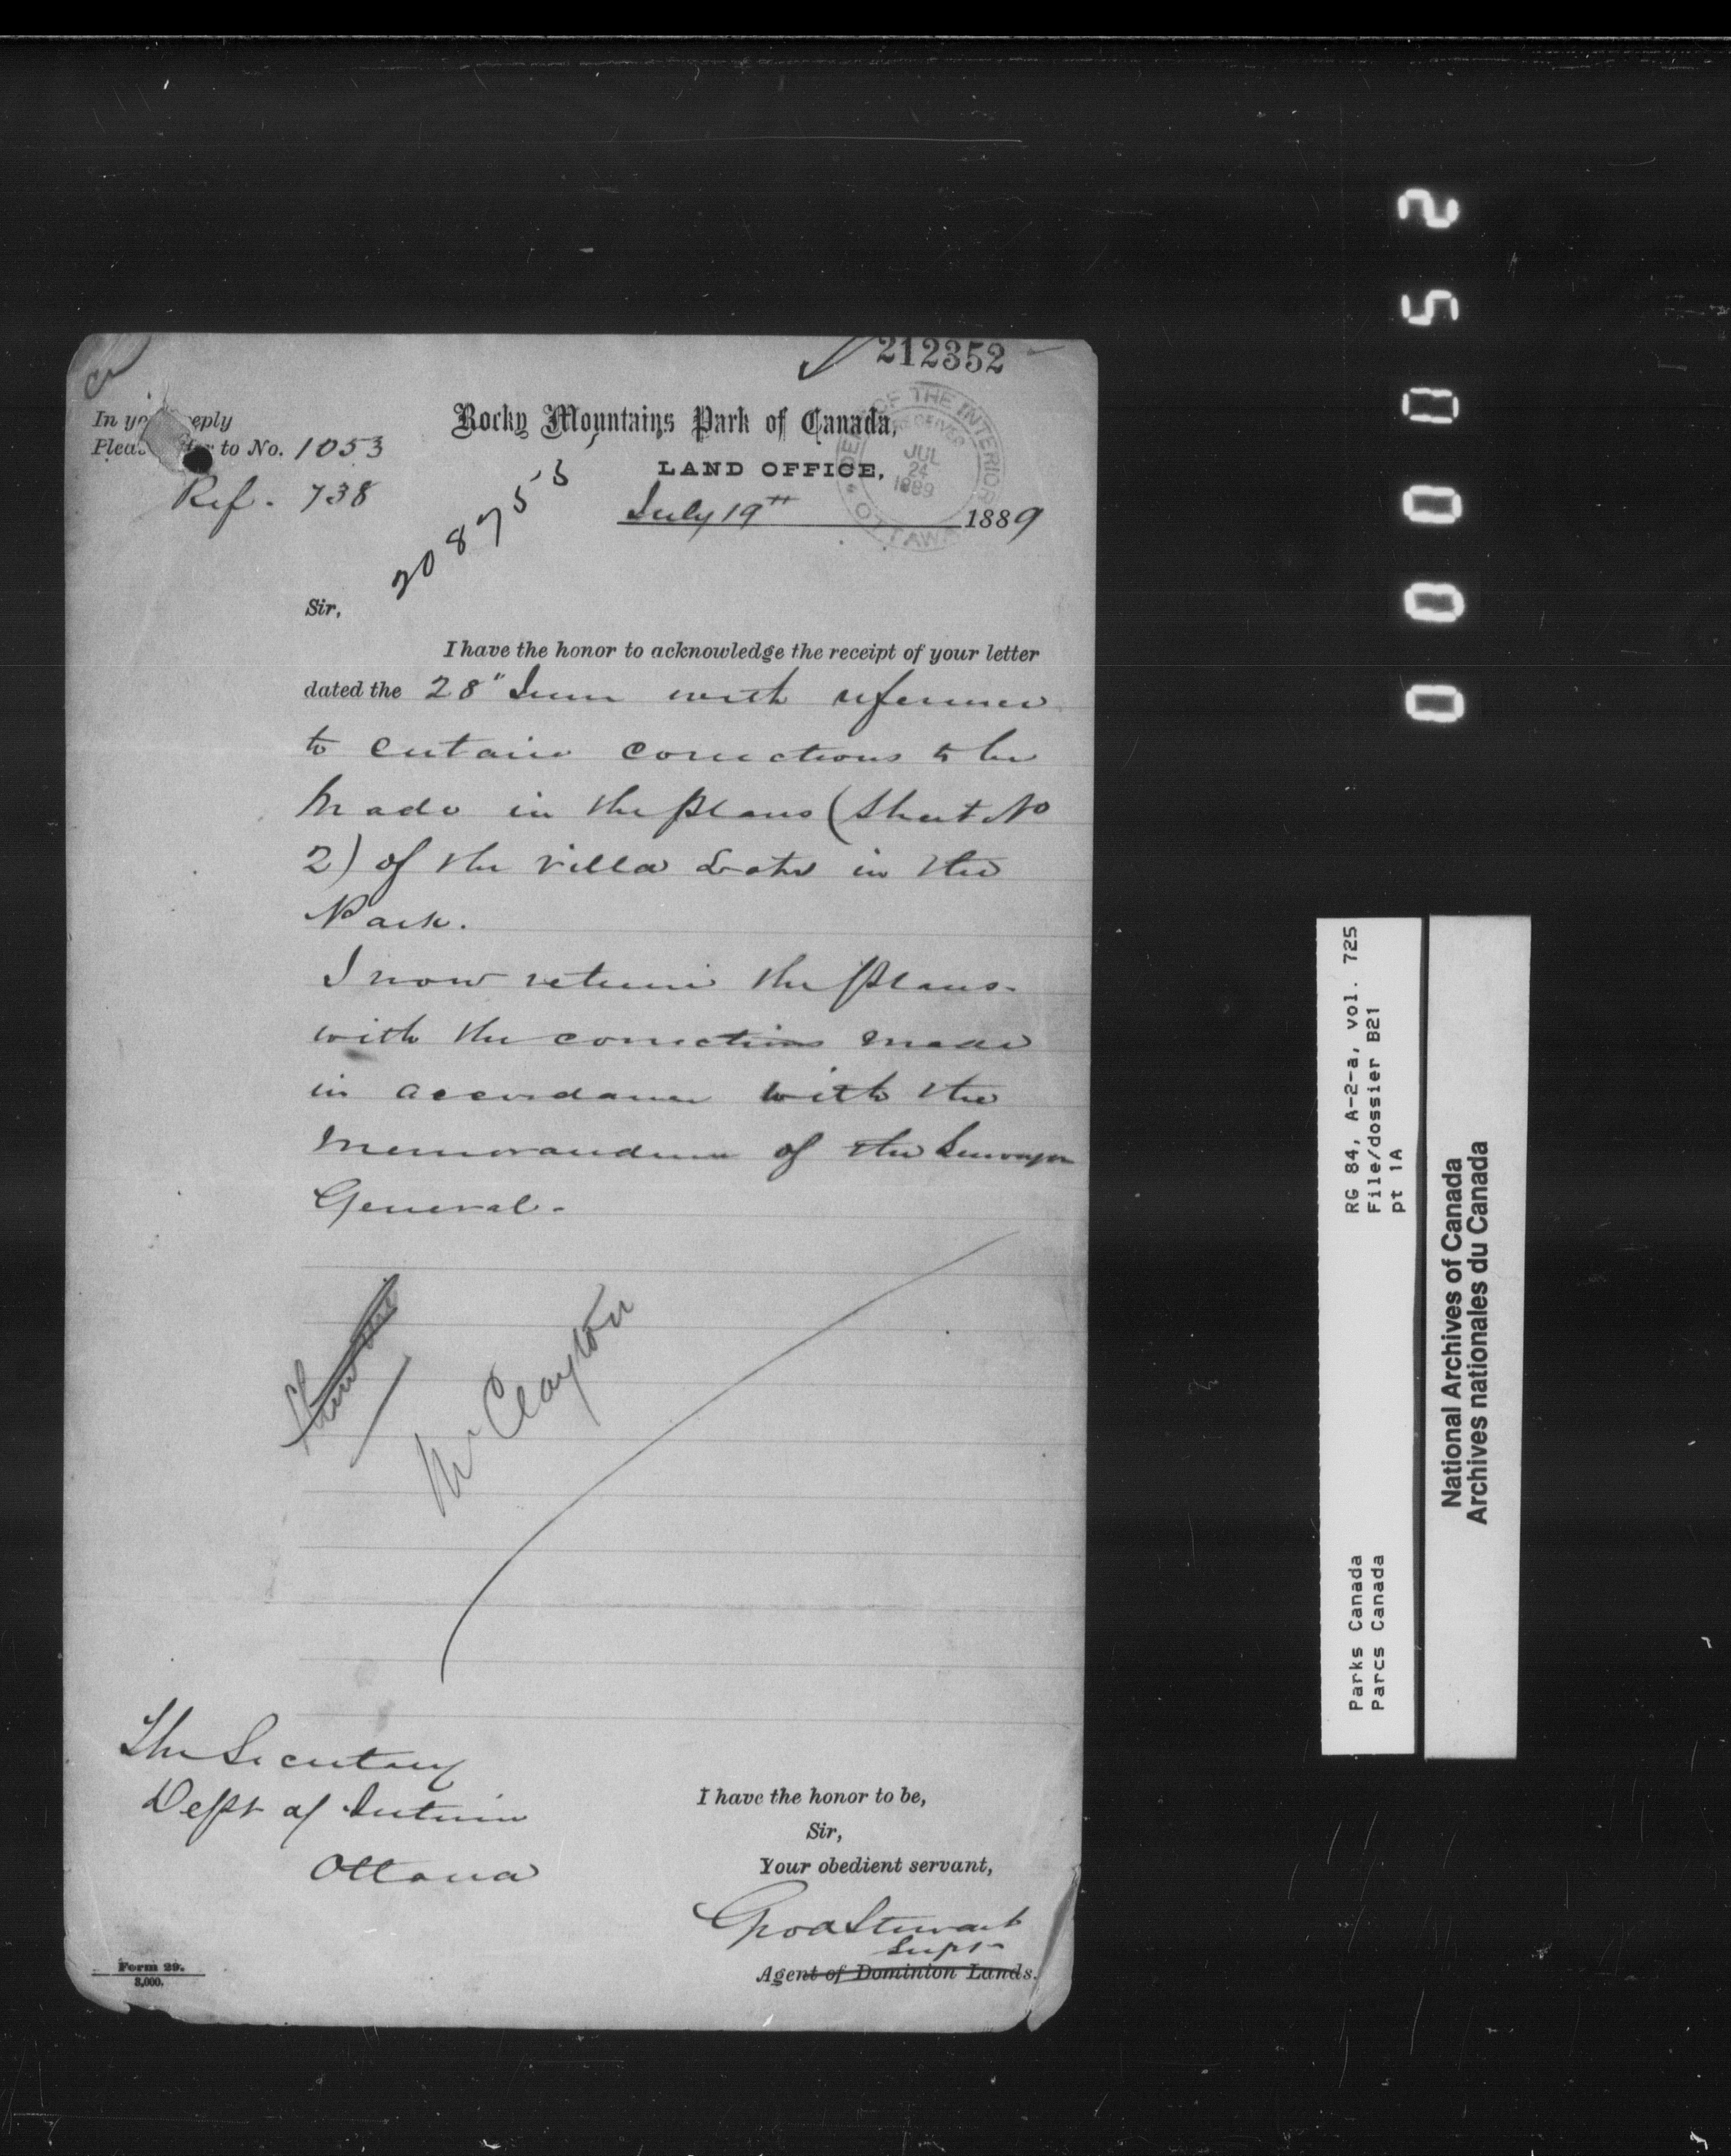 212352
In your reply
Please refer to No. 1053
Ref. 738
Rocky Mountains Park of Canada,
LAND OFFICE,
July 19th 1889
DEPT OF THE INTERIOR
RECEIVED
JUL
24
1889
OTTAWA
208755
Sir,
I have the honor to acknowledge the receipt of your letter
dated the 28" June with reference
to certain corrections to be
made in the plans (Sheet No
2) of the Villa Lots in the
Park.
I now return the plans
with the corrections made
in accordance with the
Memorandum of the Surveyor
General.
Mr Clayton
The Secretary
Dept of Interior
Ottawa
I have the honor to be,
Sir,
Your obedient servant,
Geo A Stewart
Supt
Agent of Dominion Lands.
Form 29.
3,000.
0000052
RG 84, A-2-a, vol. 725
File/dossier B21
pt 1A
Parks Canada
Parcs Canada
National Archives of Canada
Archives nationales du Canada